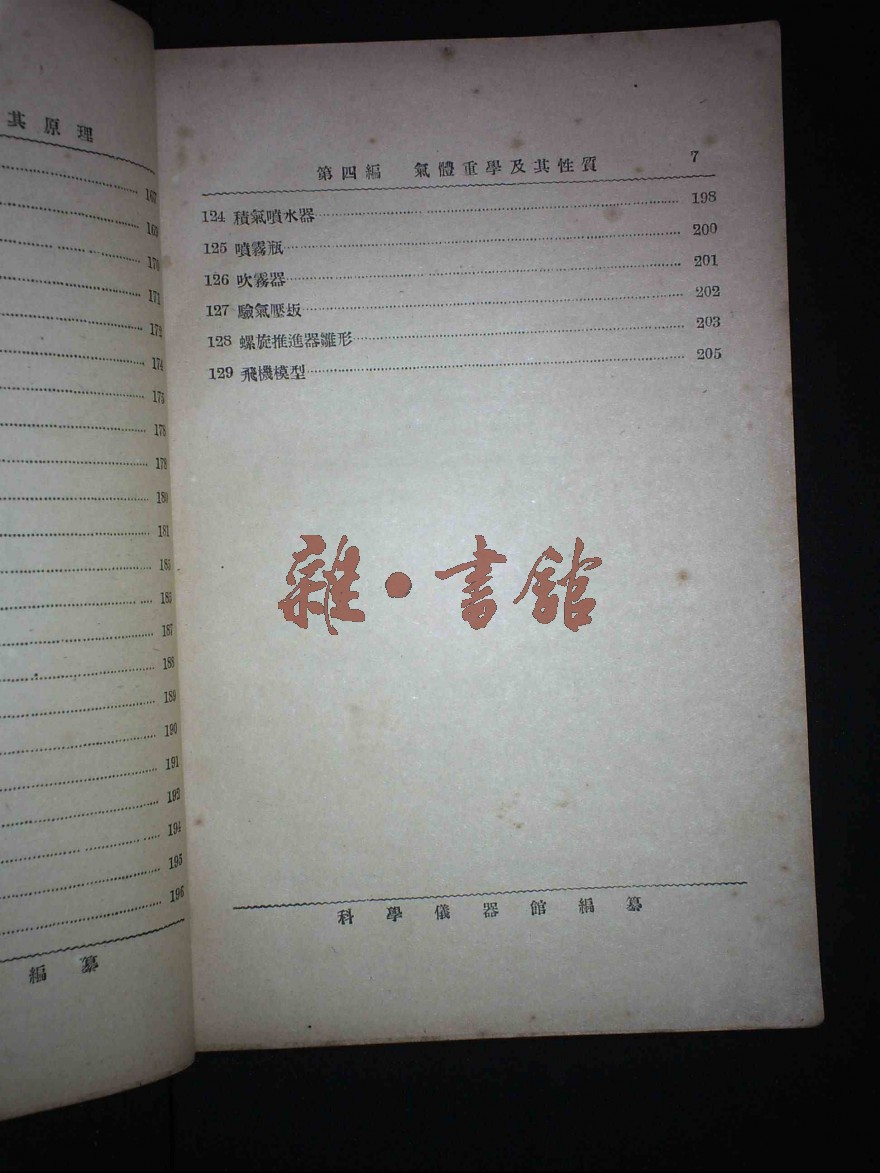 其原理
167
169
170
171
172
174
175
178
179
180
181
185
187
188
189
190
191
194
195
196
編纂
第四編 氣體重學及其性質 7
124 積氣噴水器 198
125 噴霧瓶 200
126 吹霧器 201
127 驗氣壓坂 202
128 螺旋推進器雛形 203
129 飛機模型 205
雜·書館
科學儀器館編纂